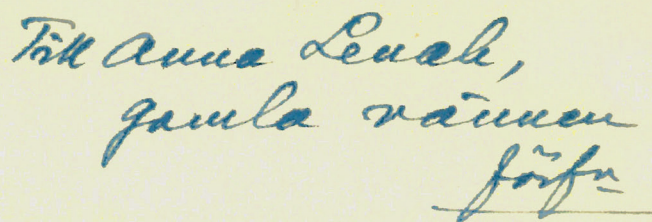 Till Anna Lenah,
gamla vännen
förf.